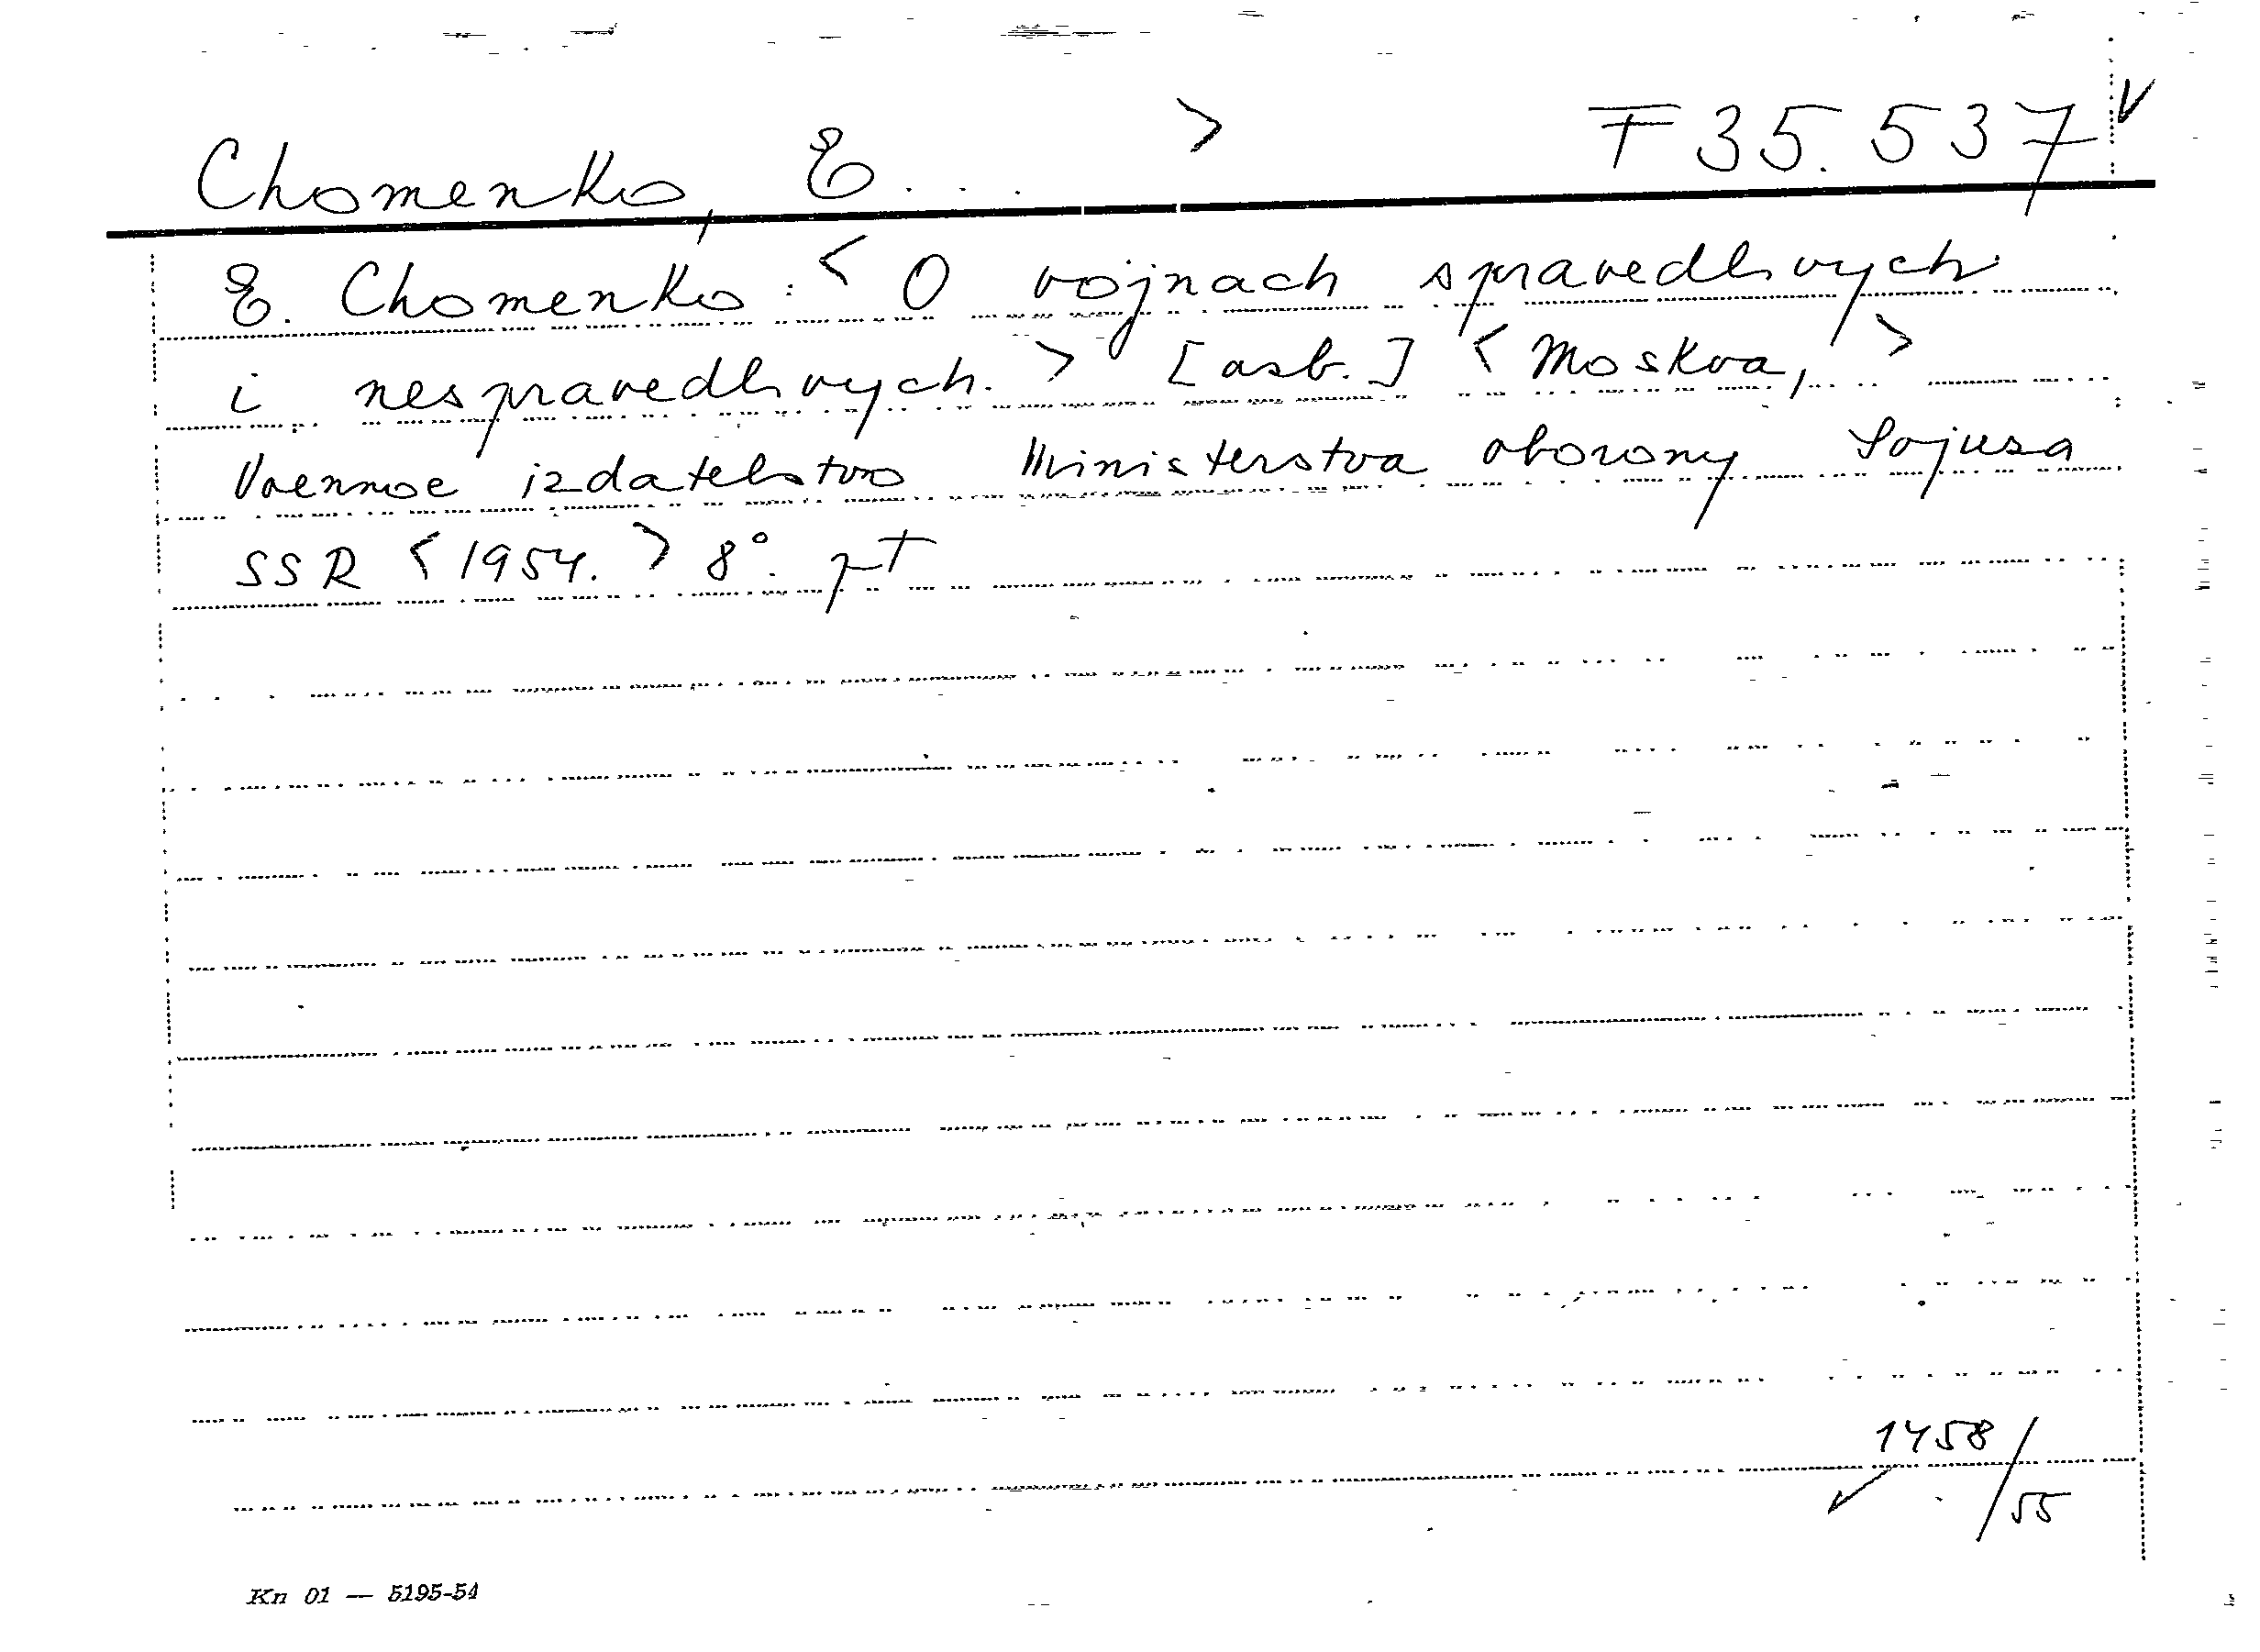 Chomenko, E... > F 35.537 V
E. Chomenko: < O vojnach spravedlivych
i nespravedlivych. > [asb.] < Moskva, >
Voennoe izdatelstvo Ministerstva oborony Sojusa
SSR < 1954. > 8°. pT
1458/55
Kn 01 — 5195-54